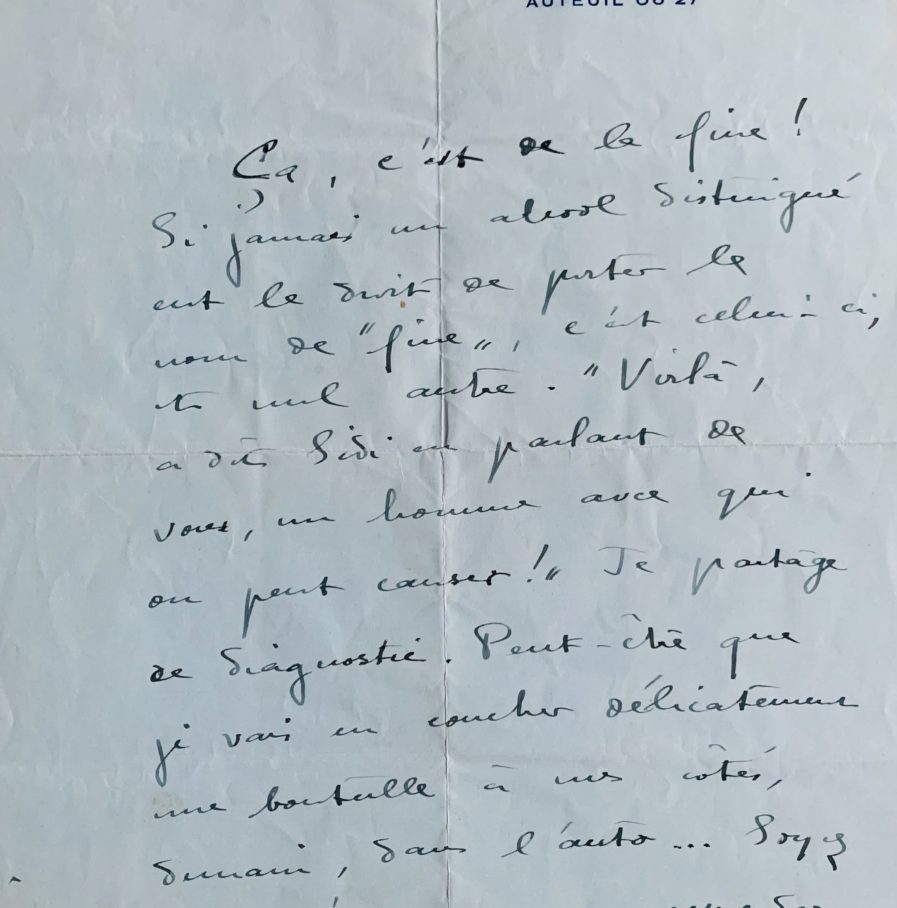 AUTEUIL 08-27
Ça, c'est de la fine !
Si jamais un alcool distingué
eut le droit de porter le
nom de "fine", c'est celui-ci,
et nul autre. "Voilà,
a dit Sidi en parlant de
vous, un homme avec qui
on peut causer !" Je partage
ce diagnostic. Peut-être que
je vais en coucher délicatement
une bouteille à mes côtés,
demain, dans l'auto... Soyez